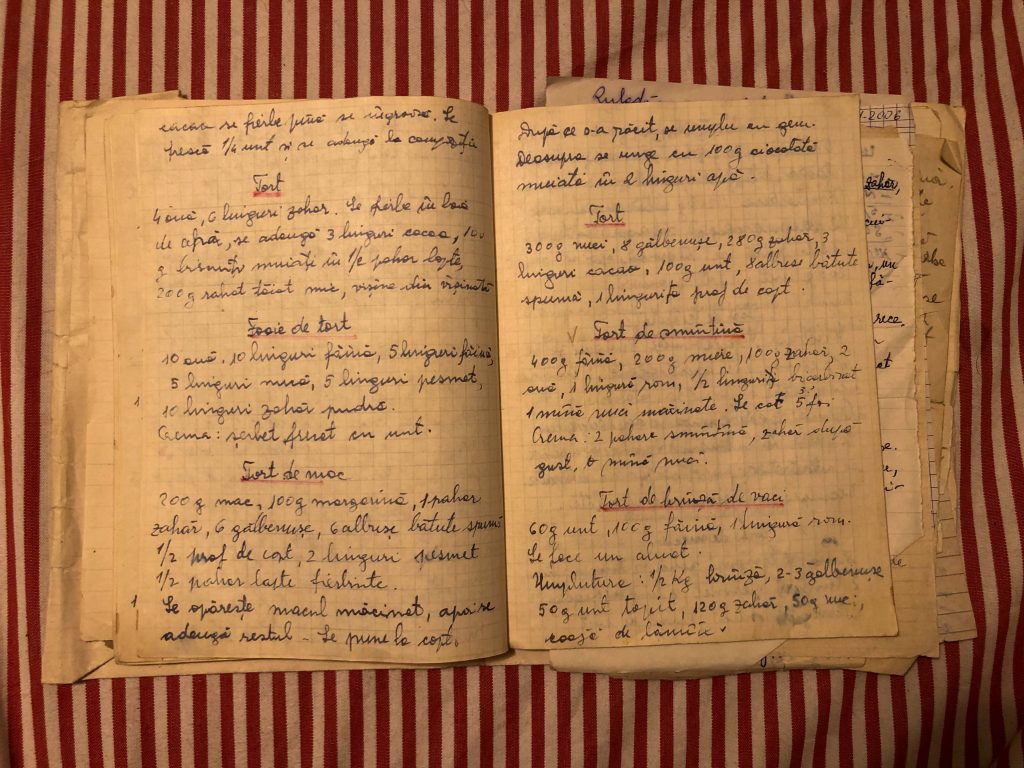 cacao se fierbe până se îngroașă. Se
freacă 1/4 unt și se adaugă la compoziție
Tort
4 ouă, 6 linguri zahăr. Se fierbe în baie
de afră, se adaugă 3 linguri cacao, 100
g biscuiți muiați în 1/2 pahar lapte,
200g rahat tăiat mic, vișine din vișinată
Foaie de tort
10 ouă, 10 linguri făină, 5 linguri făină,
5 linguri nucă, 5 linguri pesmet,
10 linguri zahăr pudră.
Crema: șerbet frecat cu unt.
Tort de mac
200 g mac, 100g margarină, 1 pahar
zahăr, 6 gălbenușe, 6 albușe bătute spumă
1/2 praf de copt, 2 linguri pesmet
1/2 pahar lapte fierbinte.
Se opărește macul măcinat, apoi se
adaugă restul - Se pune la copt.
După ce s-a răcit, se umple cu gem.
Deasupra se unge cu 100g ciocolată
muiată în 2 linguri apă.
Tort
300g nuci, 8 gălbenușe, 280g zahăr, 3
linguri cacao, 100g unt, 8 albușe bătute
spumă, 1 linguriță praf de copt.
Tort de smîntînă
400g făină, 200g miere, 100g zahăr, 2
ouă, 1 lingură rom, 1/2 linguriță bicarbonat
1 mînă nuci măcinate. Se coc 5 foi
Crema: 2 pahare smîntînă, zahăr după
gust, o mînă nuci.
Tort de brînză de vaci
60g unt, 100g făină, 1 lingură rom.
Se face un aluat.
Umplutura: 1/2 Kg brînză, 2-3 gălbenușe
50g unt topit, 120g zahăr, 50g nuci,
coajă de lămîie.
2006
zahăr,
rece.
se